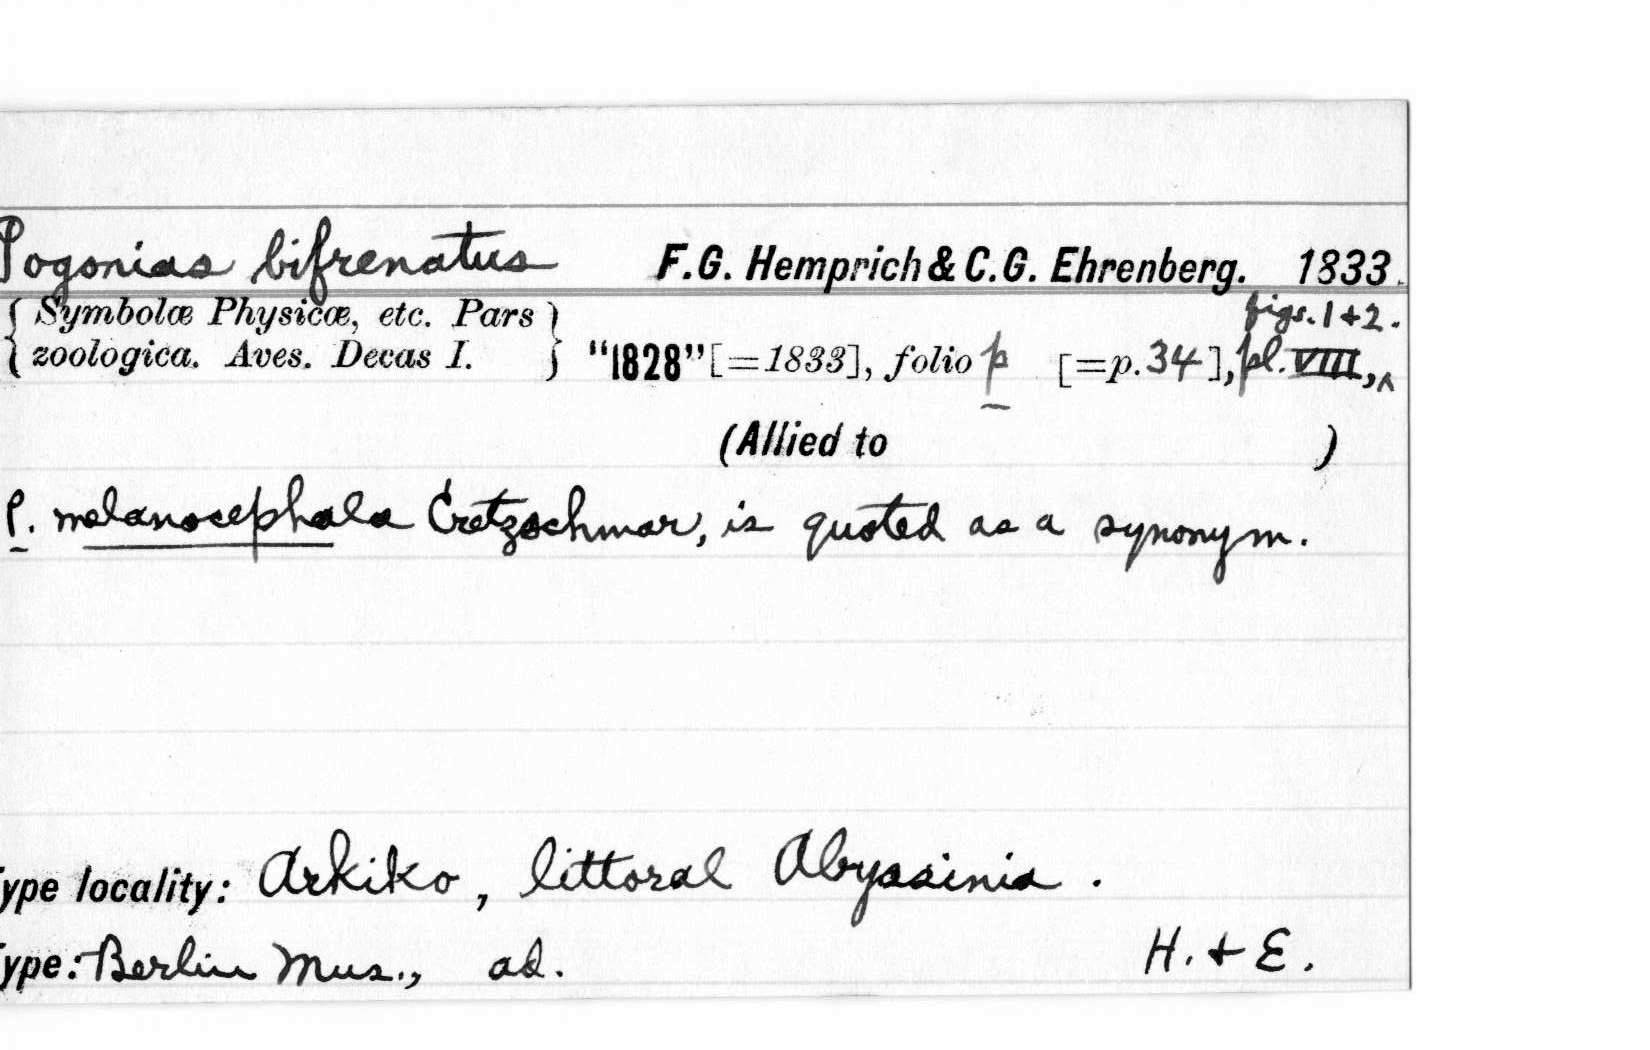 Pogonias bifrenatus F.G. Hemprich & C.G. Ehrenberg. 1833.
{ Symbolæ Physicæ, etc. Pars }
{ zoologica. Aves. Decas I. } "1828" [=1833], folio p [=p. 34], pl. VIII, ^ figs. 1 + 2.
(Allied to )
P. melanocephala Cretzschmar, is quoted as a synonym.
ype locality: Arkiko, littoral Abyssinia.
ype: Berlin Mus., ad. H. + E.